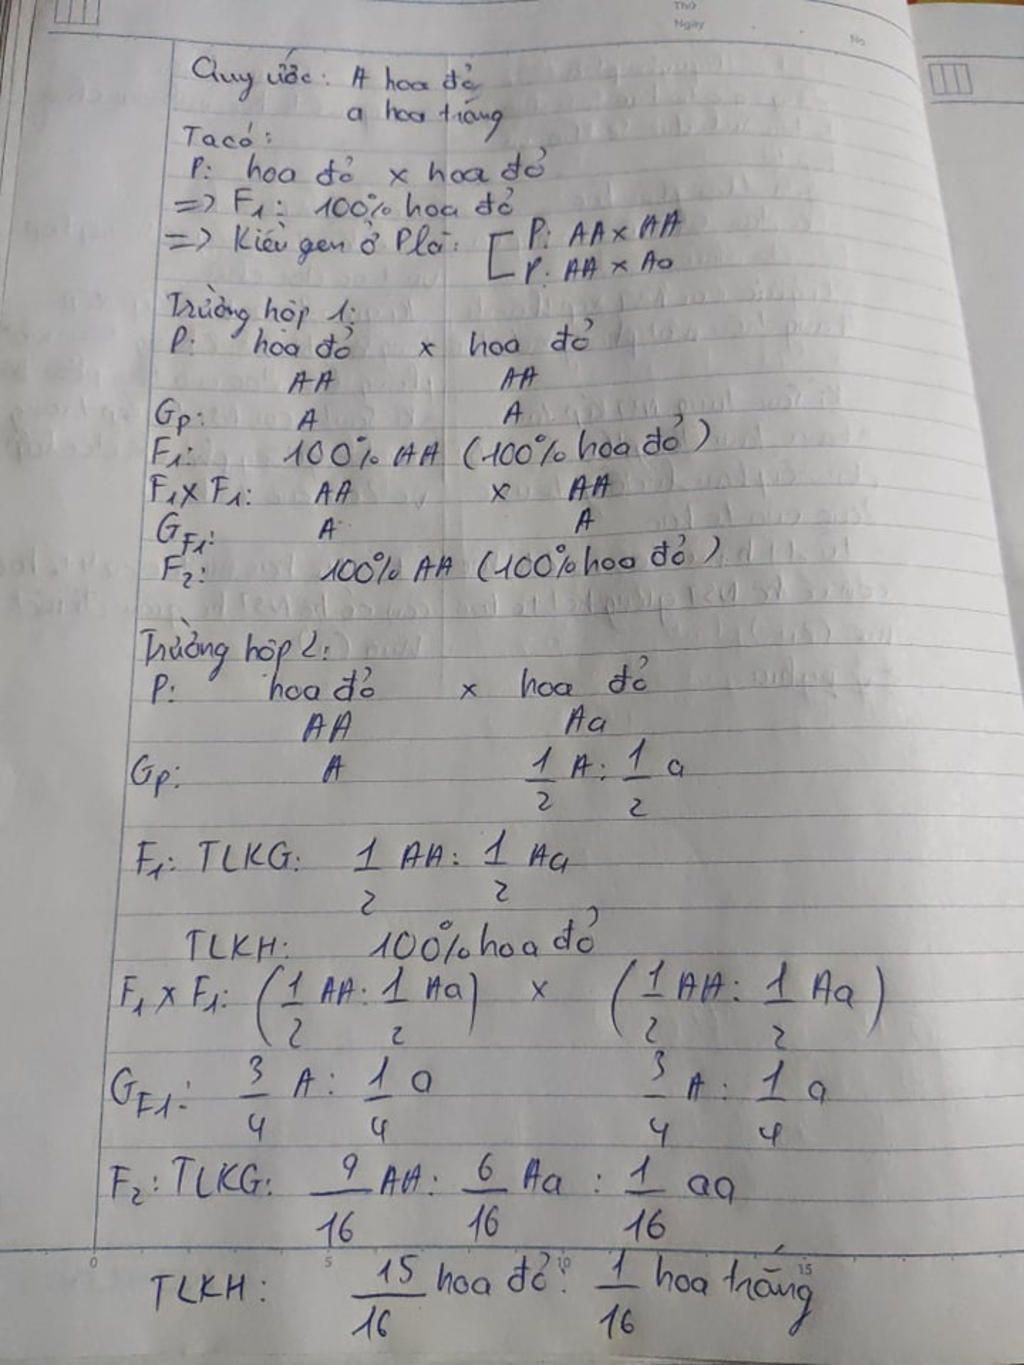 Thứ
Ngày
No
Quy ước: A hoa đỏ
a hoa trắng
Ta có:
P: hoa đỏ x hoa đỏ
=> F1: 100% hoa đỏ
=> Kiểu gen ở P là: [ P: AA x AA
P: AA x Aa
Trường hợp 1:
P: hoa đỏ x hoa đỏ
AA AA
Gp: A A
F1: 100% AA (100% hoa đỏ)
F1 x F1: AA x AA
GF1: A A
F2: 100% AA (100% hoa đỏ)
Trường hợp 2:
P: hoa đỏ x hoa đỏ
AA Aa
Gp: A 1/2 A : 1/2 a
F1: TLKG: 1/2 AA : 1/2 Aa
TLKH: 100% hoa đỏ
F1 x F1: (1/2 AA : 1/2 Aa) x (1/2 AA : 1/2 Aa)
GF1: 3/4 A : 1/4 a 3/4 A : 1/4 a
F2: TLKG: 9/16 AA : 6/16 Aa : 1/16 aa
0 5 10 15
TLKH: 15/16 hoa đỏ : 1/16 hoa trắng